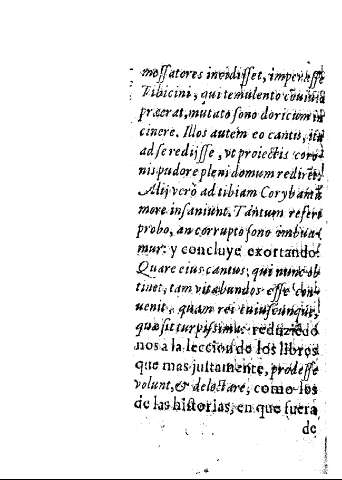 mossatores incidisset, imperasse
Tibicini, qui temulento
præerat, mutato sono doricum in
cinere. Illos autem eo cantu, ita
ad se redijsse, vt proiectis coro-
nis pudore pleni domum
Alij verò ad tibiam
more insaniunt. Tantum refert
probo, an corrupto sono
mur: y concluye exortando:
Quare eius cantus, qui nunc ob
tinet, tam vitabundos esse con-
uenit, quam rei
quæ sit turpissima: reduziēdo
nos a la leccion de los libros
que mas justamente, prodesse
volunt, & delectare, como los
de las historias, en que fuera
de